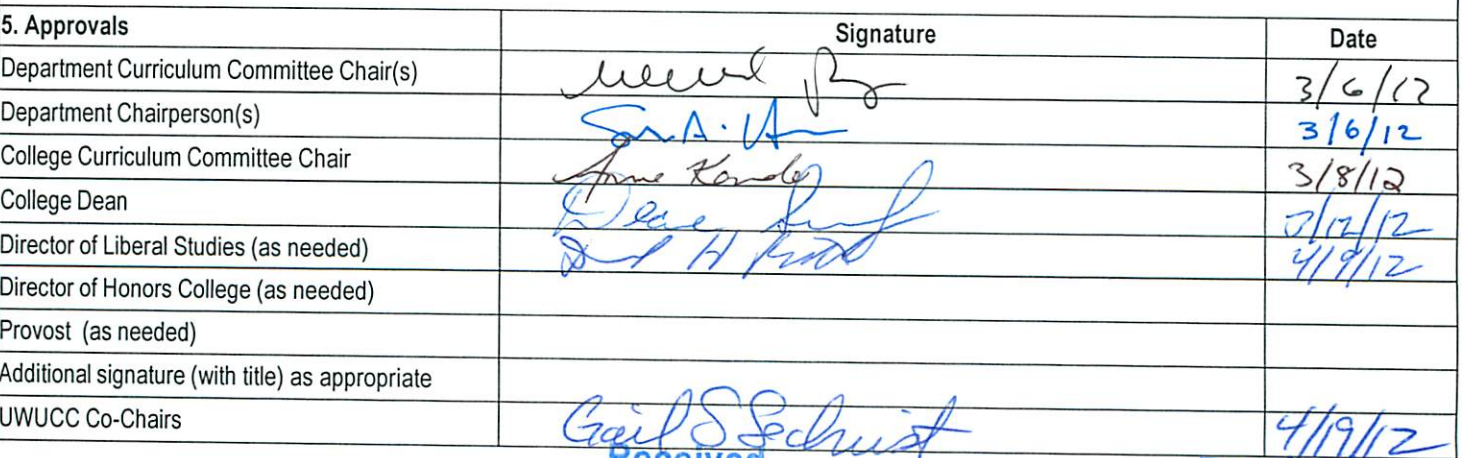 5. Approvals Signature Date
Department Curriculum Committee Chair(s) 3/6/12
Department Chairperson(s) 3/6/12
College Curriculum Committee Chair Anne Kondo 3/8/12
College Dean Deane 3/12/12
Director of Liberal Studies (as needed) H 4/9/12
Director of Honors College (as needed)
Provost (as needed)
Additional signature (with title) as appropriate
UWUCC Co-Chairs Gail S Sechrist 4/19/12
Received